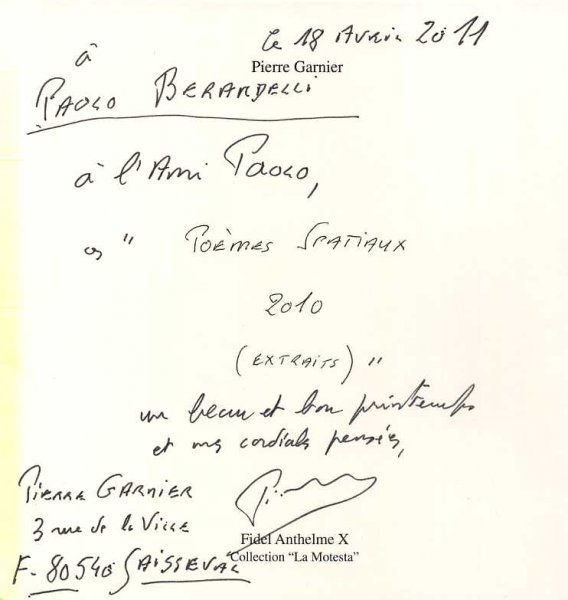 le 18 Avril 2011
à
Pierre Garnier
PAOLO BERARDELLI
à l'Ami PAOLO,
ces " POÈMES SPATIAUX
2010
(EXTRAITS) "
un beau et bon printemps
et mes cordiales pensées,
PIERRE GARNIER
3 rue de la Ville
Fidel Anthelme X
F-80540 SAISSEVAL
Collection “La Motesta”